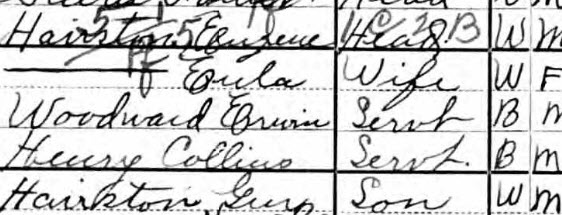 Hairston, Eugene Head W M
Eula Wife W F
Woodward Ervin Servt B M
Henry Collins Servt. B M
Hairkton, Son W M